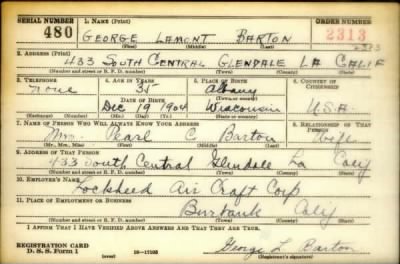 SERIAL NUMBER 1. NAME (Print) ORDER NUMBER
480 GEORGE LAMONT BARTON 2313
(First) (Middle) (Last) 2313
2. ADDRESS (Print)
433 SOUTH CENTRAL GLENDALE LA CALIF
(Number and street or R. F. D. number) (Town) (County) (State)
3. TELEPHONE 4. AGE IN YEARS 5. PLACE OF BIRTH 6. COUNTRY OF CITIZENSHIP
none 35 Albany
DATE OF BIRTH (Town or county)
Dec 19 1904 Wisconsin U.S.A.
(Exchange) (Number) (Mo.) (Day) (Yr.) (State or country)
7. NAME OF PERSON WHO WILL ALWAYS KNOW YOUR ADDRESS 8. RELATIONSHIP OF THAT PERSON
Mrs. Pearl C Barton Wife
(Mr., Mrs., Miss) (First) (Middle) (Last)
9. ADDRESS OF THAT PERSON
433 South Central Glendale La Calif
(Number and street or R. F. D. number) (Town) (County) (State)
10. EMPLOYER'S NAME
Lockheed Air Craft Corp
11. PLACE OF EMPLOYMENT OR BUSINESS
Burbank Calif
(Number and street or R. F. D. number) (Town) (County) (State)
I AFFIRM THAT I HAVE VERIFIED ABOVE ANSWERS AND THAT THEY ARE TRUE.
REGISTRATION CARD
D. S. S. Form 1 (over) 16—17105 George L Barton
(Registrant's signature)